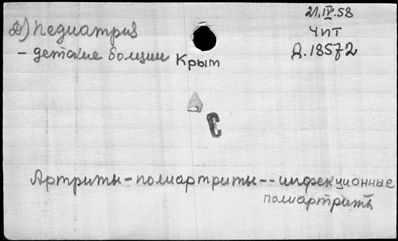 21.IV.58
2) Педиатрия
ЧИТ
– детские болезни
Крым
Д.18572
С
Артриты – полиартриты -- инфекционные
полиартриты